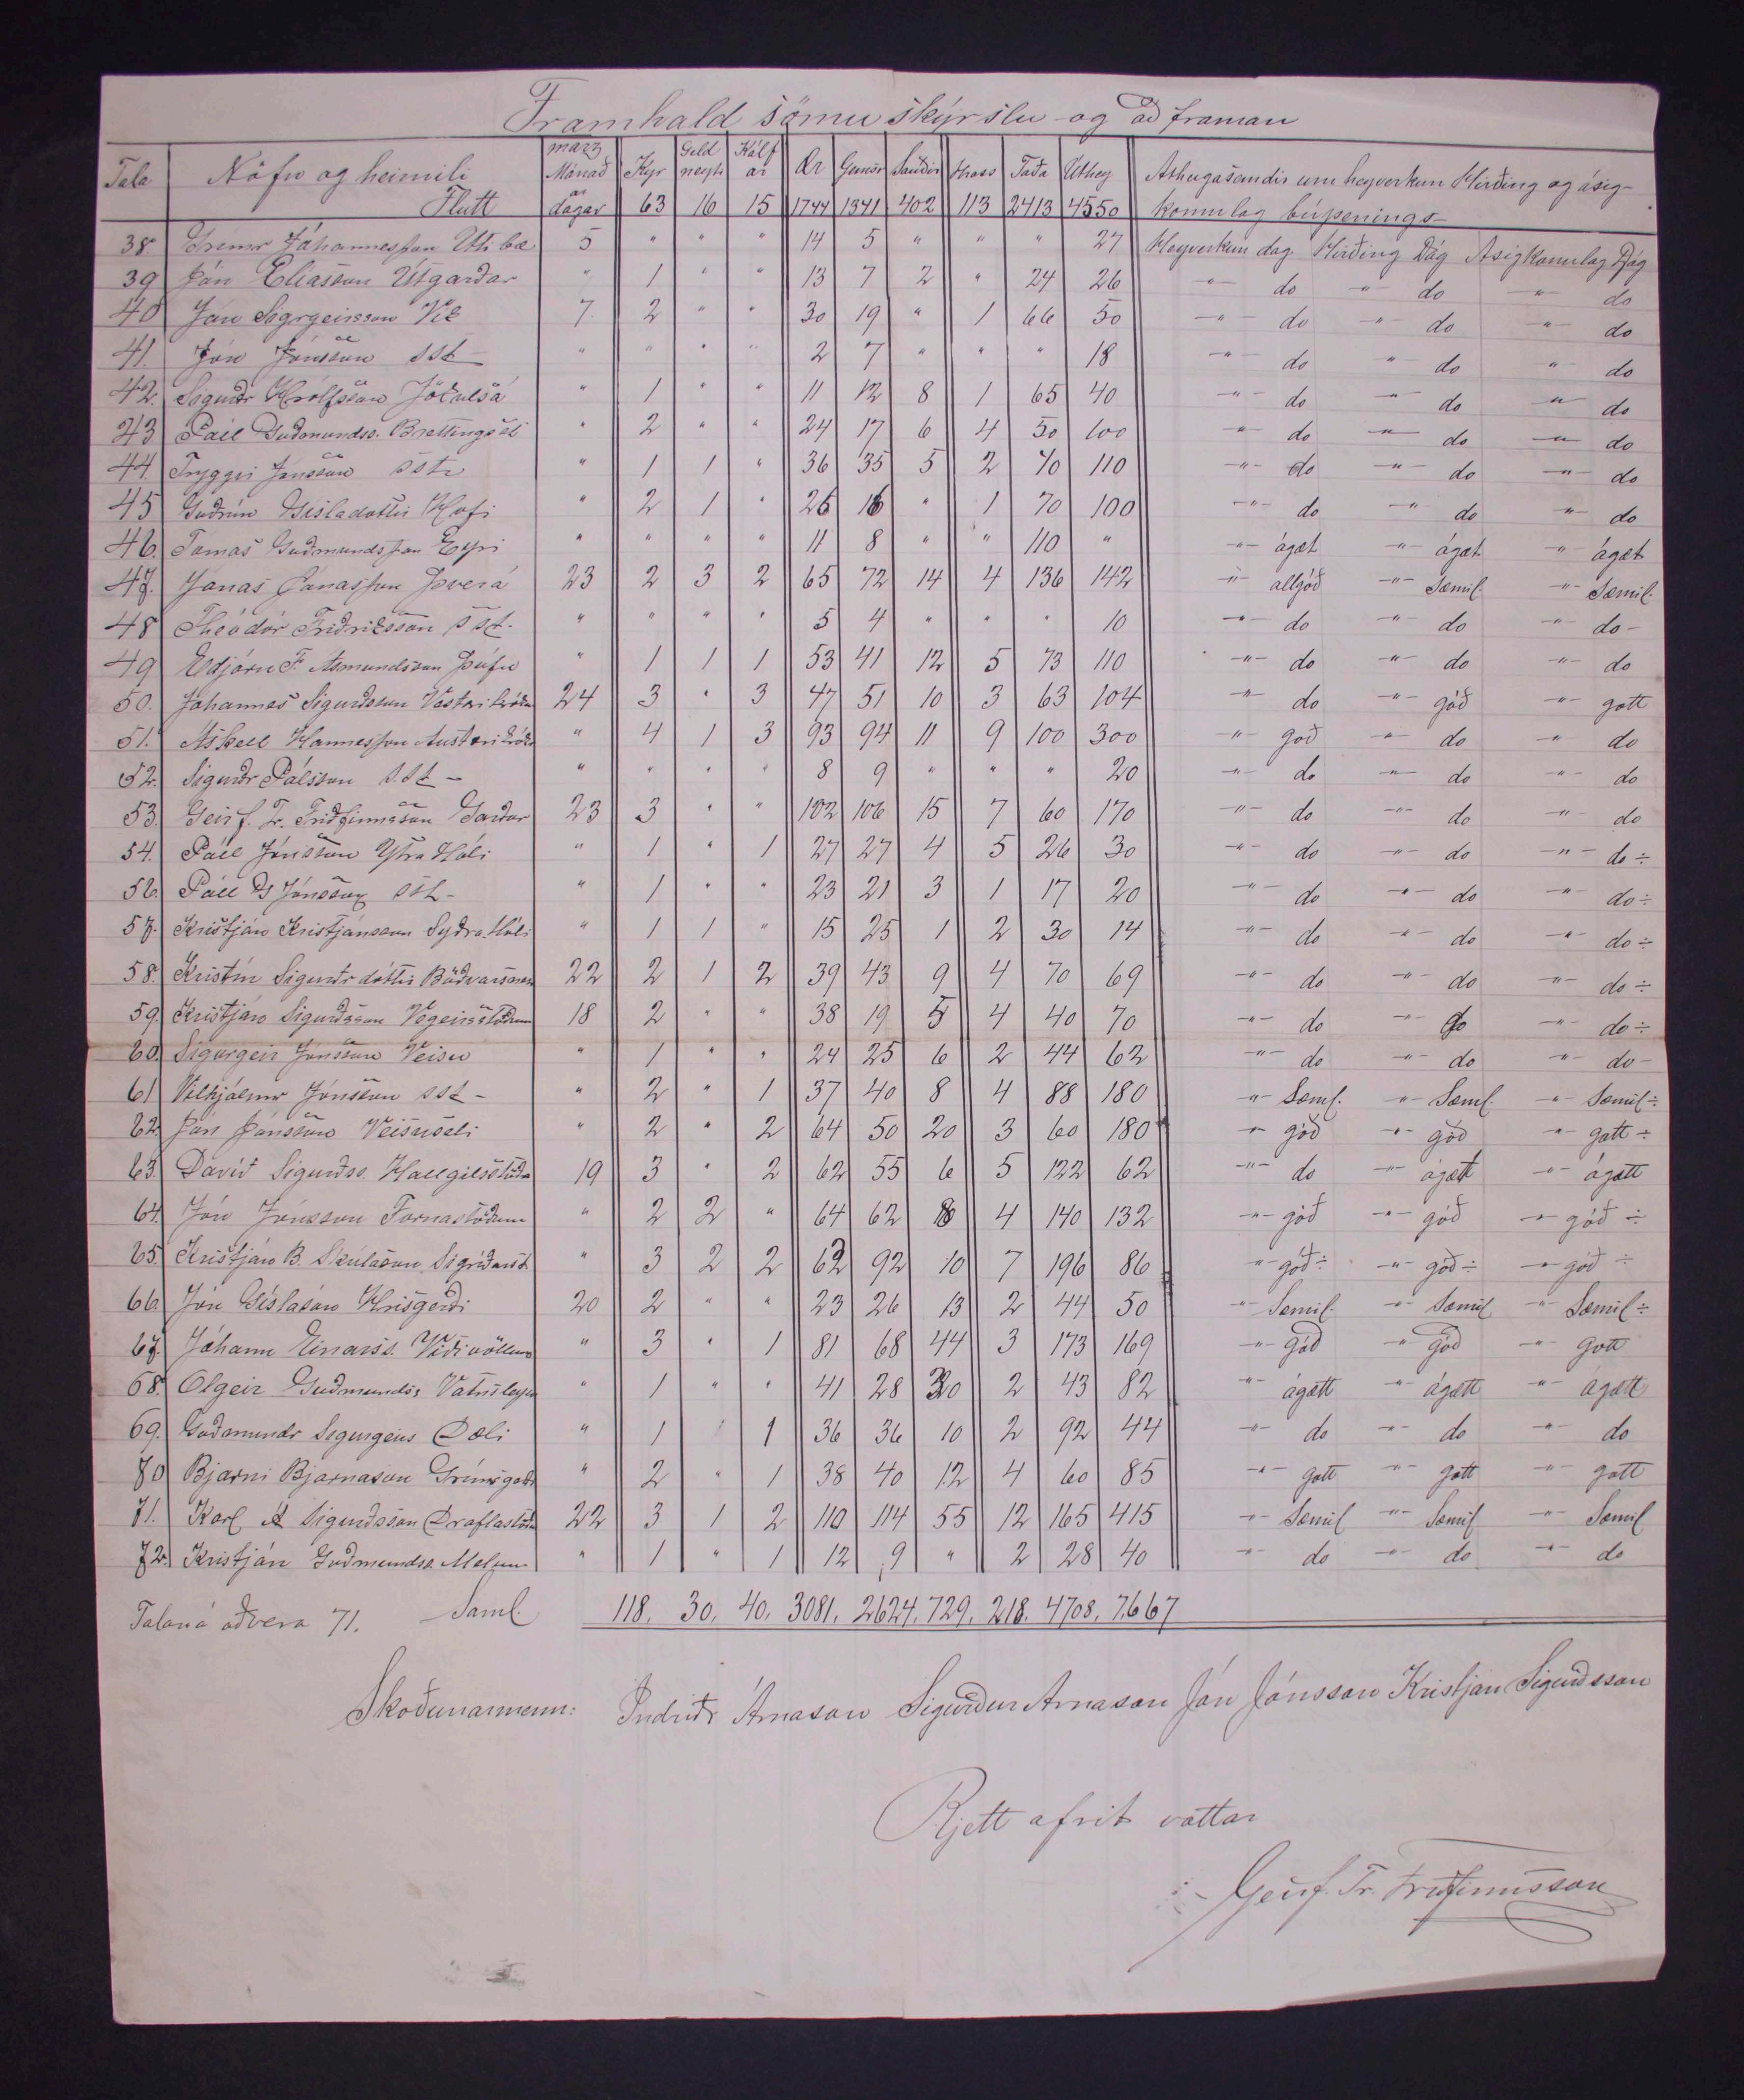 Framhald sömu skýrslu og að framan
Tala | Nöfn og heimili | marz Mánaðar dagar | Kýr | Geld neyti | Kálfar | Ær | Gemsar | Sauðir | Hross | Taða | Úthey | Athugasemdir um heyverkun Hirðing og ásig-
Flutt | 63 | 16 | 15 | 1744 | 1341 | 402 | 113 | 2413 | 4550 | komulag búpenings
38 | Grímr Jóhannesson Útibæ | 5 | " | " | " | 14 | 5 | " | " | " | 27 | Heyverkun dág. Hirðing Dág Ásigkomulag Dág
39 | Jón Elíasson Útgarðar | " | 1 | " | " | 13 | 7 | 2 | " | 24 | 26 | -"- do -"- do -"- do
40 | Jón Sigrgeirsson Vík | 7. | 2 | " | " | 30 | 19 | " | 1 | 66 | 50 | -"- do -"- do -"- do
41. | Jón Jónsson sst | " | " | " | " | 2 | 7 | " | " | " | 18 | -"- do -"- do -"- do
42. | Sigurðr Hrólfsson Jökulsá | " | 1 | " | " | 11 | 12 | 8 | 1 | 65 | 40 | -"- do -"- do -"- do
43 | Páll Guðmundss. Brettingsst | " | 2 | " | " | 24 | 17 | 6 | 4 | 50 | 100 | -"- do -"- do -"- do
44. | Tryggvi Jónsson sst | " | 1 | 1 | " | 36 | 35 | 5 | 2 | 70 | 110 | -"- do -"- do -"- do
45 | Guðrún Gísladóttir Hofi | " | 2 | 1 | " | 26 | 16 | " | 1 | 70 | 100 | -"- do -"- do -"- do
46. | Tómas Guðmundsson Eyri | " | " | " | " | 11 | 8 | " | " | 110 | " | -"- ágæt -"- ágæt -"- ágæt
47. | Jónas Jónasson Þverá | 23 | 2 | 3 | 2 | 65 | 72 | 14 | 4 | 136 | 142 | -"- allgóð -"- Sæmil. -"- Sæmil.
48 | Theódór Friðriksson sst. | " | " | " | " | 5 | 4 | " | " | " | 10 | -"- do -"- do -"- do -
49 | Ásmundsson Þúfu | " | 1 | 1 | 1 | 53 | 41 | 12 | 5 | 73 | 110 | -"- do -"- do -"- do
50. | Jóhannes Sigurdsson Vestari | 24 | 3 | " | 3 | 47 | 51 | 10 | 3 | 63 | 104 | -"- do -"- góð -"- gott
51. | Áskell Hannesson Austari | " | 4 | 1 | 3 | 93 | 94 | 11 | 9 | 100 | 300 | -"- góð -"- do -"- do
52. | Sigurðr Pálsson sst - | " | " | " | " | 8 | 9 | " | " | " | 20 | -"- do -"- do -"- do
53. | Geirf. Tr. Friðfinnsson Garðar | 23 | 3 | " | " | 102 | 106 | 15 | 7 | 60 | 170 | -"- do -"- do -"- do
54. | Páll Jónsson Ytra Hóli | " | 1 | " | 1 | 27 | 27 | 4 | 5 | 26 | 30 | -"- do -"- do -"- do ÷
56. | Páll G Jónsson sst - | " | 1 | " | " | 23 | 21 | 3 | 1 | 17 | 20 | -"- do -"- do -"- do ÷
57. | Kristján Kristjánsson Syðra Hóli | " | 1 | 1 | " | 15 | 25 | 1 | 2 | 30 | 14 | -"- do -"- do -"- do ÷
58. | Kristín Sigurðrdóttir Böðvarsnes | 22 | 2 | 1 | 2 | 39 | 43 | 9 | 4 | 70 | 69 | -"- do -"- do -"- do ÷
59. | Kristján Sigurdsson Végeirsstöðum | 18 | 2 | " | " | 38 | 19 | 5 | 4 | 40 | 70 | -"- do -"- do -"- do ÷
60. | Sigurgeir Jónsson Veisu | " | 1 | " | " | 24 | 25 | 6 | 2 | 44 | 62 | -"- do -"- do -"- do -
61 | Vilhjálmr Jónsson sst - | " | 2 | " | 1 | 37 | 40 | 8 | 4 | 88 | 180 | -"- Sæml. -"- Sæml -"- Sæmil ÷
62. | Jón Jónsson Veisuseli | " | 2 | " | 2 | 64 | 50 | 20 | 3 | 60 | 180 | -"- góð -"- góð -"- gott ÷
63. | Davíð Sigurdss. Hallgilsstöðum | 19 | 3 | " | 2 | 62 | 55 | 6 | 5 | 122 | 62 | -"- do -"- ágætt -"- ágætt
64. | Jón Jónsson Fornastöðum | " | 2 | 2 | " | 64 | 62 | | 4 | 140 | 132 | -"- góð -"- góð -"- góð ÷
65. | Kristján B. Skúlason Sigríðarst | " | 3 | 2 | 2 | 62 | 92 | 10 | 7 | 196 | 86 | -"- góð ÷ -"- góð ÷ -"- góð ÷
66. | Jón Gíslason Hrísgerði | 20 | 2 | " | " | 23 | 26 | 13 | 2 | 44 | 50 | -"- Sæmil. -"- Sæmil -"- Sæmil ÷
67. | Jóhann Einarss. Víðivöllum | " | 3 | " | 1 | 81 | 68 | 44 | 3 | 173 | 169 | -"- góð -"- góð -"- gott
68. | Olgeir Guðmundss Vatnsleysu | " | 1 | " | " | 41 | 28 | 30 | 2 | 43 | 82 | -"- ágætt -"- ágætt -"- ágætt
69. | Guðmundr Sigurgeirs Dæli | " | 1 | " | 1 | 36 | 36 | 10 | 2 | 92 | 44 | -"- do -"- do -"- do
70 | Bjarni Bjarnason Grímsgerði | " | 2 | " | 1 | 38 | 40 | 12 | 4 | 60 | 85 | -"- gott -"- gott -"- gott
71. | Karl Á Sigurðsson Draflastöðum | 22 | 3 | 1 | 2 | 110 | 114 | 55 | 12 | 165 | 415 | -"- Sæmil -"- Sæmil -"- Sæmil
72. | Kristján Guðmundss. Melum | " | 1 | " | 1 | 12 | 9 | " | 2 | 28 | 40 | -"- do -"- do -"- do
Talan á að vera 71. Saml. 118. 30. 40. 3081. 2624. 729. 218. 4708. 7667
Skoðunarmenn: Indriðr Árnason Sigurður Arnason Jón Jónsson Kristján Sigurðsson
Rjett afrit vottar
Geirf. Tr. Friðfinnsson